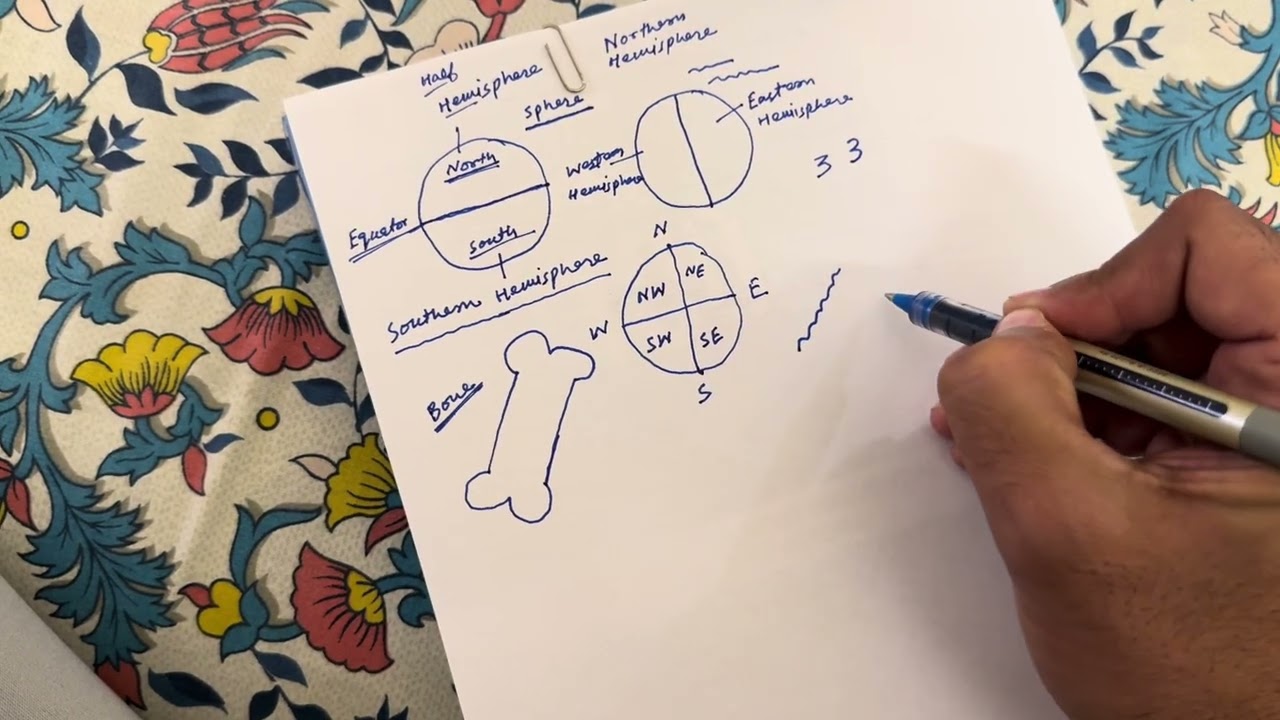 Half
Hemisphere
Sphere
North
Equator
South
Southern Hemisphere
Northern
Hemisphere
Eastern
Hemisphere
Western
Hemisphere
3 3
N
NW
NE
W
E
SW
SE
S
Bone